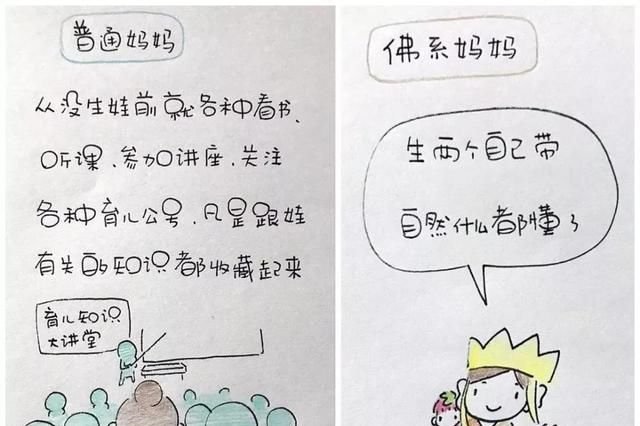 普通妈妈
从没生娃前就各种看书、
听课、参加讲座、关注
各种育儿公号，凡是跟娃
有关的知识都收藏起来
育儿知识
大讲堂
佛系妈妈
生两个自己带
自然什么都懂了